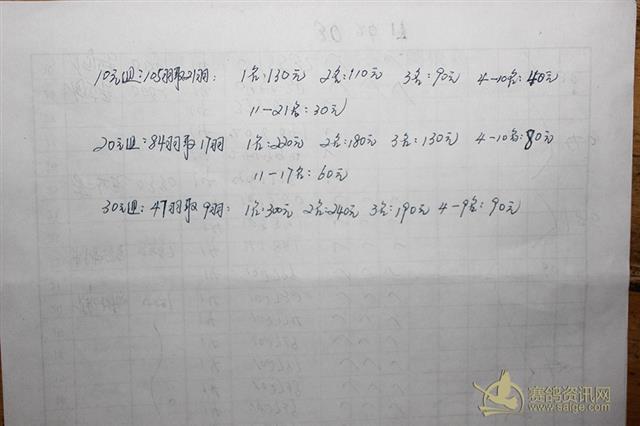 10元组：105羽取21羽： 1名：130元 2名：110元 3名：90元 4-10名：40元
11-21名：30元
20元组：84羽取17羽 1名：220元 2名：180元 3名：130元 4-10名：80元
11-17名：60元
30元组：47羽取9羽： 1名：300元 2名：240元 3名：190元 4-9名：90元
赛鸽资讯网
www.saige.com